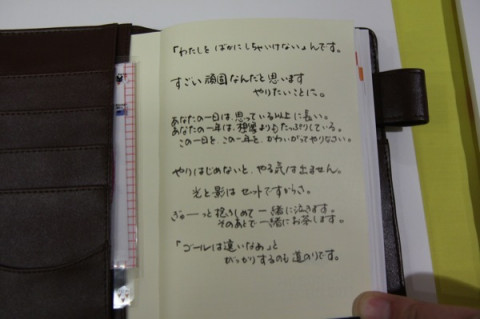 「わたしを ばかにしちゃいけない」んです。
すごい頑固なんだと思います
やりたいことに。
あなたの一日は、思っている以上に長い。
あなたの一年は、想像よりもたっぷりしている。
この一日を、この一年を、かわいがってやりなさい。
やりはじめないと、やる気は出ません。
光と影は セットですからさ。
ぎゅーっと抱きしめて 一緒に泣きます。
そのあとで一緒にお茶します。
「ゴールは遠いなぁ」と
がっかりするのも 道のりです。